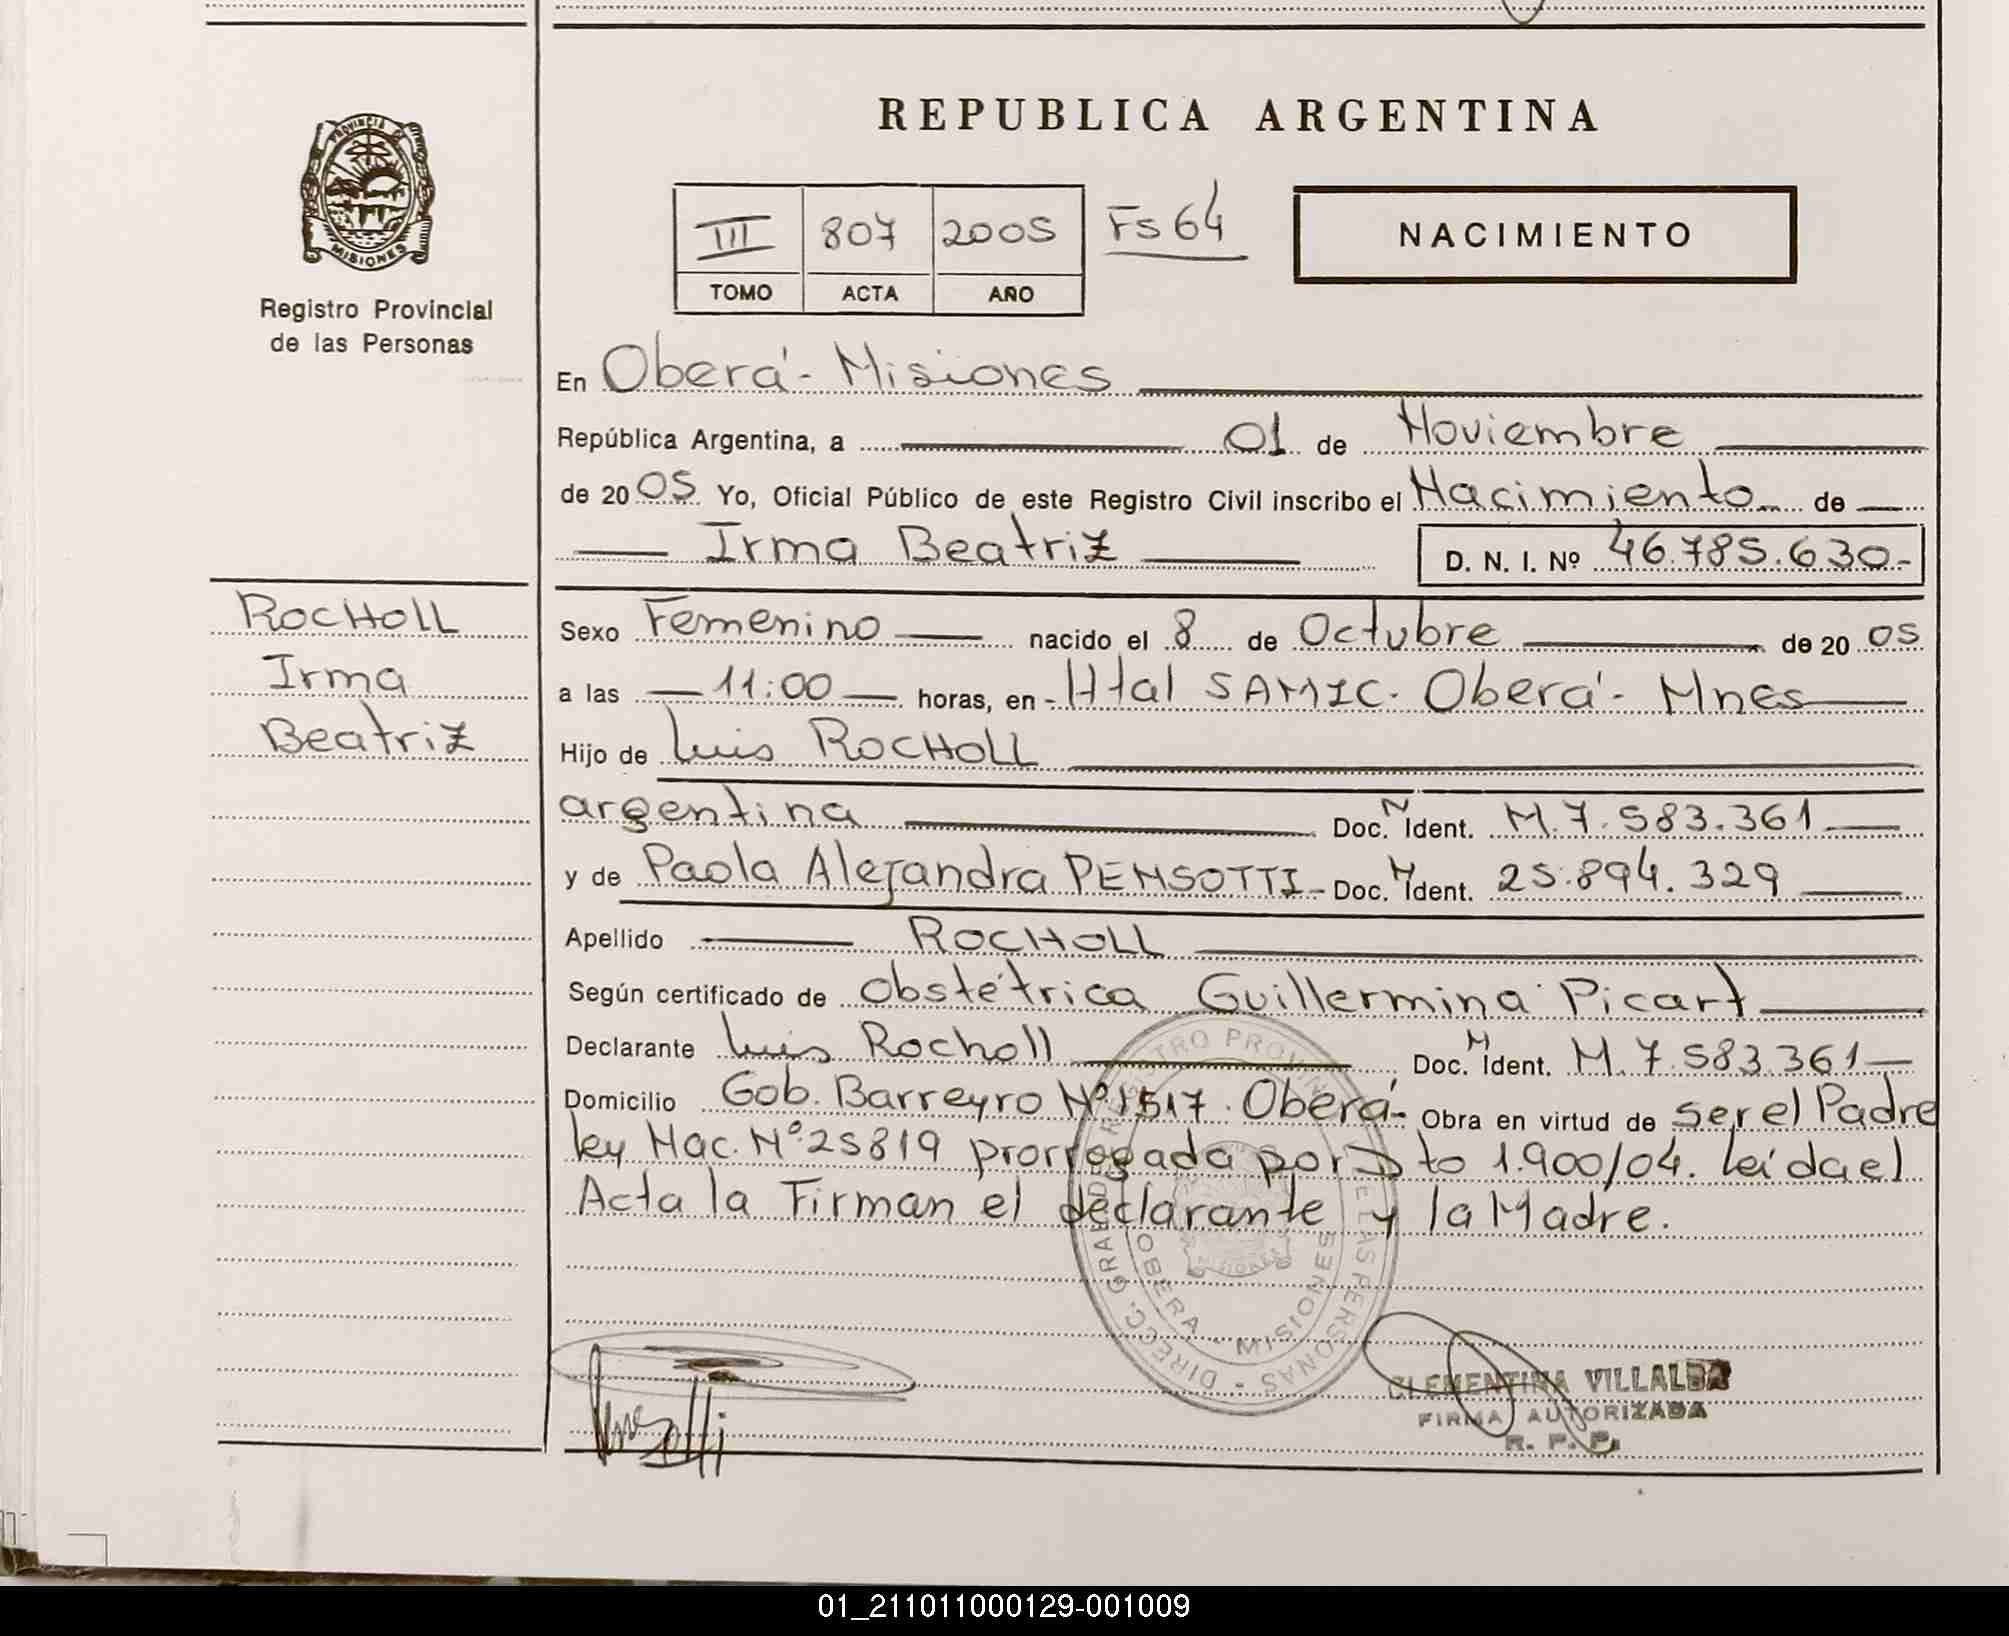 REPUBLICA ARGENTINA
PROVINCIA DE
MISIONES
Registro Provincial
de las Personas
III 807 2005 Fs 64
TOMO ACTA AÑO
NACIMIENTO
En Oberá - Misiones
República Argentina, a 01 de Noviembre
de 20 05 Yo, Oficial Público de este Registro Civil inscribo el Nacimiento de
Irma Beatriz D. N. I. Nº 46.785.630.-
ROCHOLL
Irma
Beatriz
Sexo Femenino nacido el 8 de Octubre de 20 05
a las 11:00 horas, en - Htal SAMIC. Oberá - Mnes
Hijo de Luis ROCHOLL
argentina Doc. N Ident. M. 7.583.361
y de Paola Alejandra PENSOTTI - Doc. N Ident. 25.894.329
Apellido ROCHOLL
Según certificado de Obstétrica Guillermina Picart
Declarante Luis Rocholl Doc. N Ident. M. 7.583.361
Domicilio Gob. Barreyro Nº 1517. Oberá - Obra en virtud de ser el Padre
ley Nac. Nº 25819 prorrogada por Dto 1.900/04. Leída el
Acta la Firman el declarante y la Madre.
DIRECC. GRAL. DE REGISTRO PROVINCIAL DE LAS PERSONAS -
OBERA - MISIONES
CLEMENTINA VILLALBA
FIRMA AUTORIZADA
R. P. P.
01_211011000129-001009